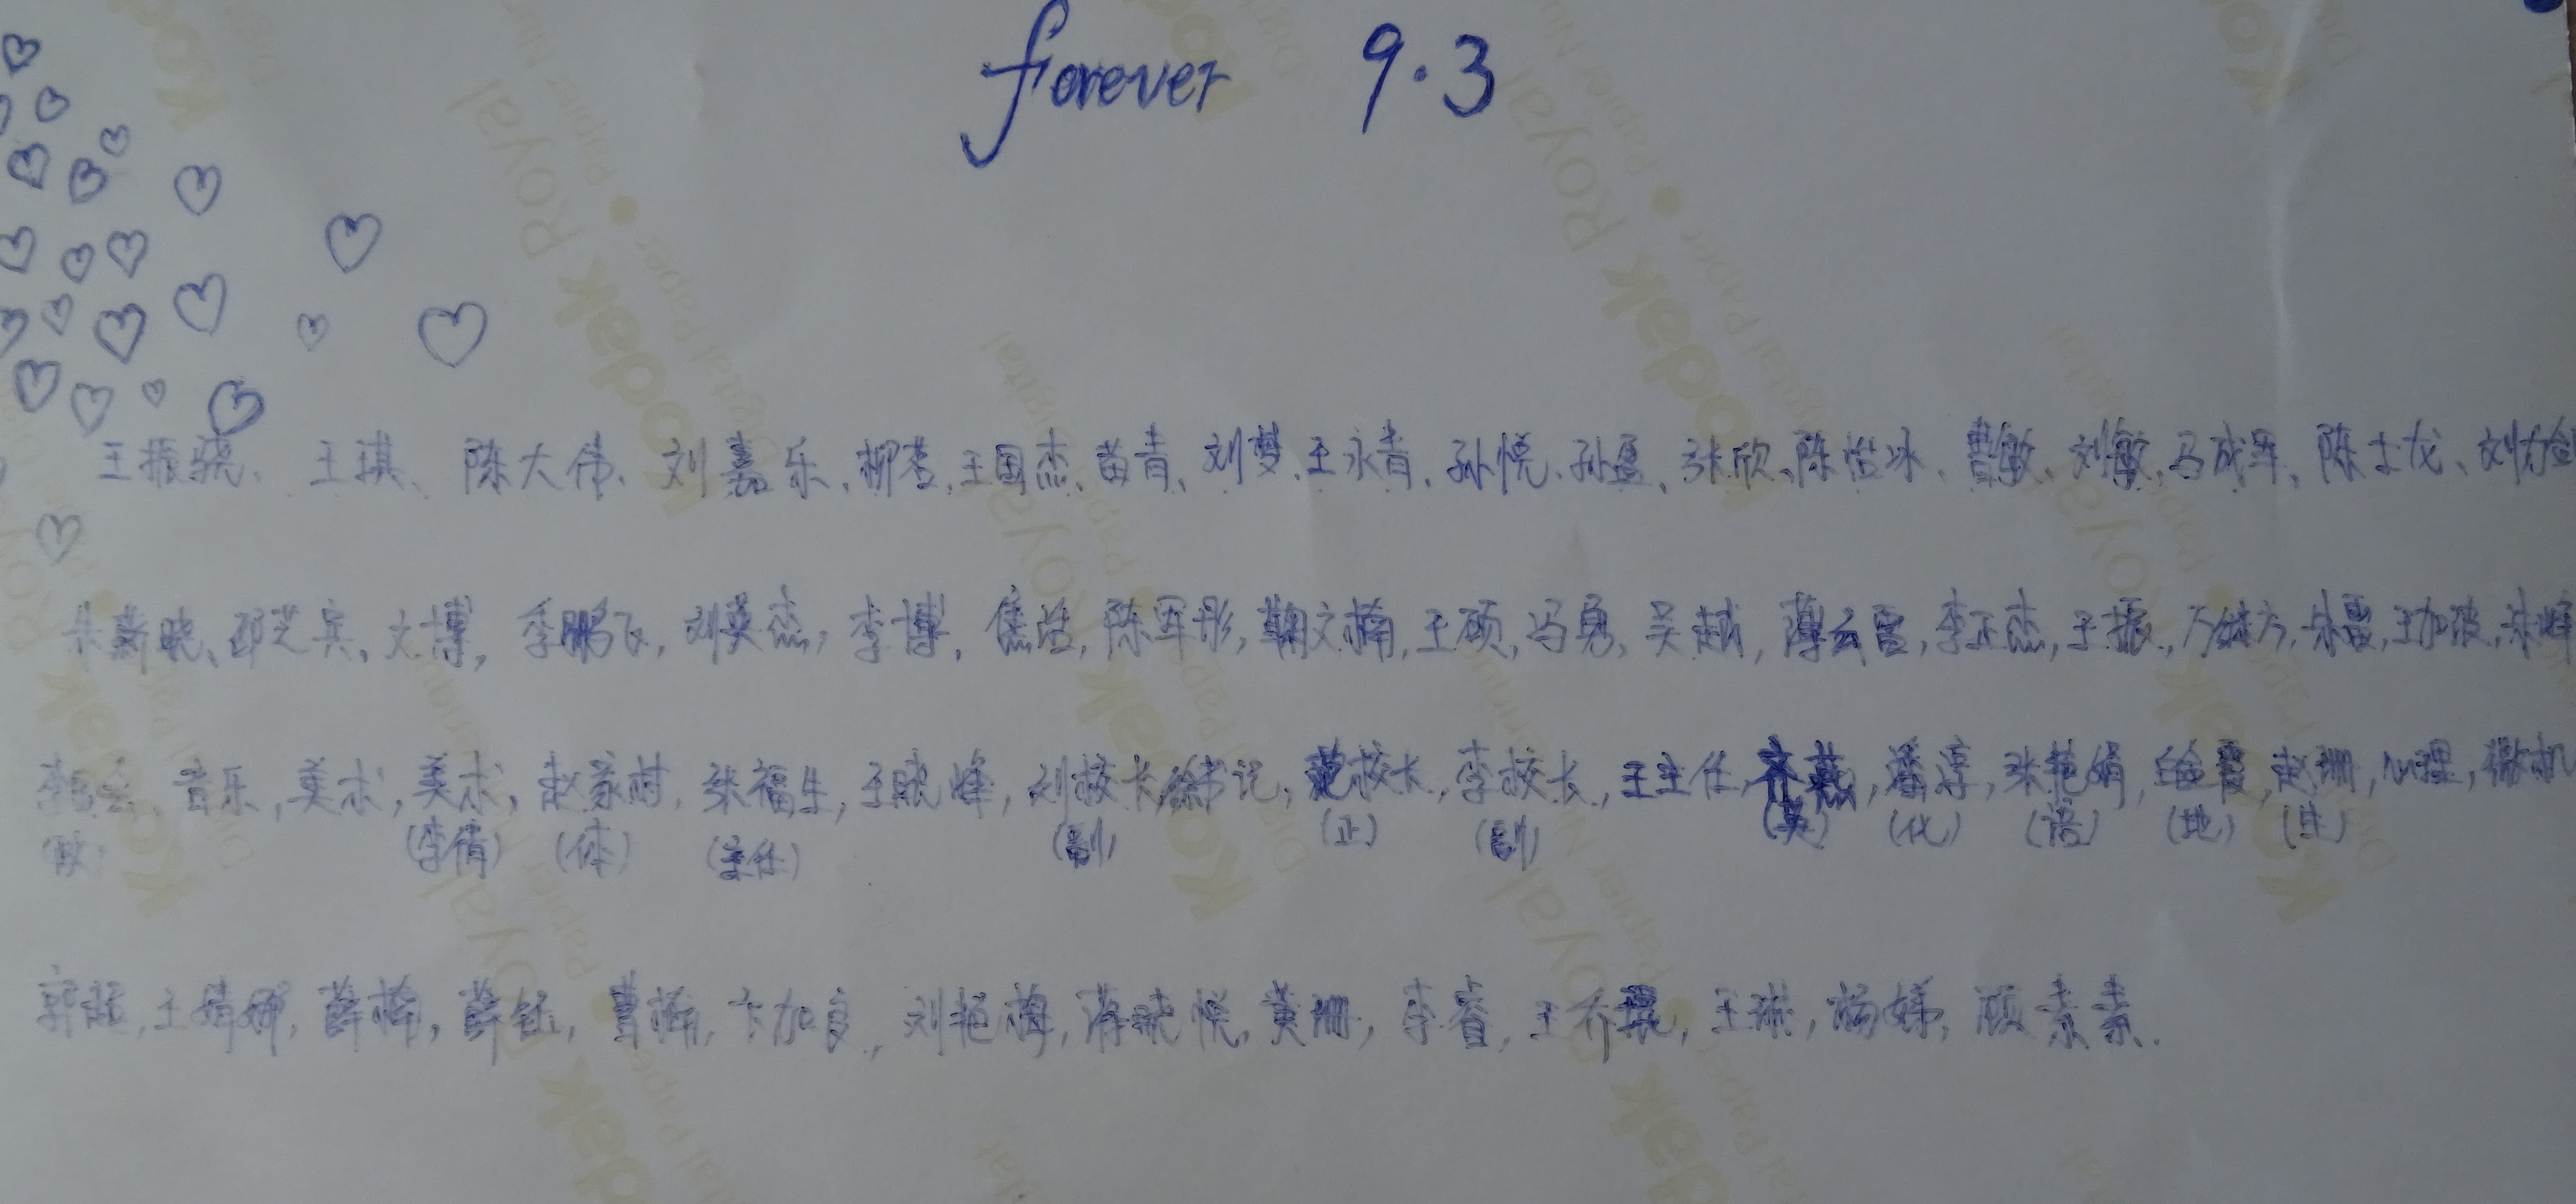 forever 9.3
王振骁、王琪、陈大伟、刘嘉乐、柳青、王国杰、苗青、刘梦、王永青、孙悦、孙盈、张欣、陈怡冰、曹敏、刘敏、马成军、陈士龙、刘
朱蕲晓、邵芝宾、大博，李鹏飞，刘英杰，李博，焦浩，陈军彤，鞠文楠，王硕，冯勇，吴越，薄云霞，李正杰，王振，朱霞，王加波，朱峰
音乐，美术，美术，赵家村，张福生，王晓峰，刘校长，徐书记，范校长，李校长，王主任，齐燕，潘淳，张艳娟，赵珊，心理，微机
(政) (李倩) (体) (主任) (副) (正) (副) (英) (化) (语) (地) (生)
郭超，王娟娜，薛楠，薛钰，曹楠，卞加良，刘艳梅，蒋晓悦，黄珊，李睿，王乔琨，王琳，杨娣，顾素素.
Kodak Royal Digital Paper